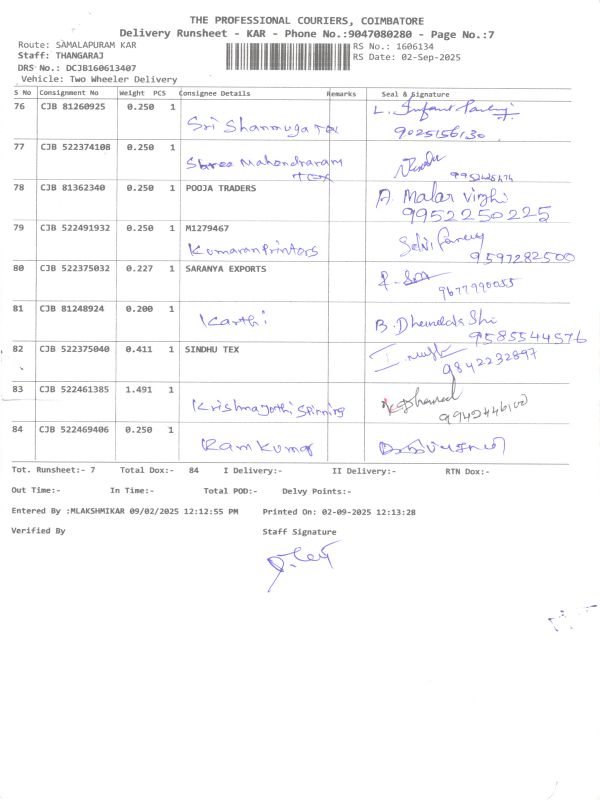 THE PROFESSIONAL COURIERS, COIMBATORE
Delivery Runsheet - KAR - Phone No.:9047080280 - Page No.:7
Route: SAMALAPURAM KAR
RS No.: 1606134
Staff: THANGARAJ
RS Date: 02-Sep-2025
DRS No.: DCJB160613407
Vehicle: Two Wheeler Delivery
S No Consignment No Weight PCS Consignee Details Remarks Seal & Signature
76 CJB 81260925 0.250 1
Sri Shanmuga Tex
9025156130
77 CJB 522374108 0.250 1
Shree Mahendraram
Tex
78 CJB 81362340 0.250 1 POOJA TRADERS A. Malar vizhi
9952250225
79 CJB 522491932 0.250 1 M1279467
Kumaran Printers
9597282500
80 CJB 522375032 0.227 1 SARANYA EXPORTS
9677990055
81 CJB 81248924 0.200 1
Karthi
9585544576
82 CJB 522375040 0.411 1 SINDHU TEX
9842232897
83 CJB 522461385 1.491 1
Krishna Jothi Spinning
84 CJB 522469406 0.250 1
Ram Kumar
Tot. Runsheet:- 7 Total Dox:- 84 I Delivery:- II Delivery:- RTN Dox:-
Out Time:- In Time:- Total POD:- Delvy Points:-
Entered By :MLAKSHMIKAR 09/02/2025 12:12:55 PM Printed On: 02-09-2025 12:13:28
Verified By Staff Signature